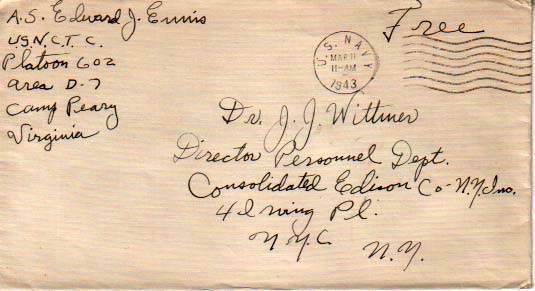 A.S. Edward J. Ennis
U.S.N.C.T.C.
Platoon 602
Area D-7
Camp Peary
Virginia
Free
U.S. NAVY
MAR 11
11-AM
1943
Dr. J. J. Wittmer
Director Personnel Dept.
Consolidated Edison Co-N.Y. Inc.
4 Irving Pl.
N.Y.C. N.Y.